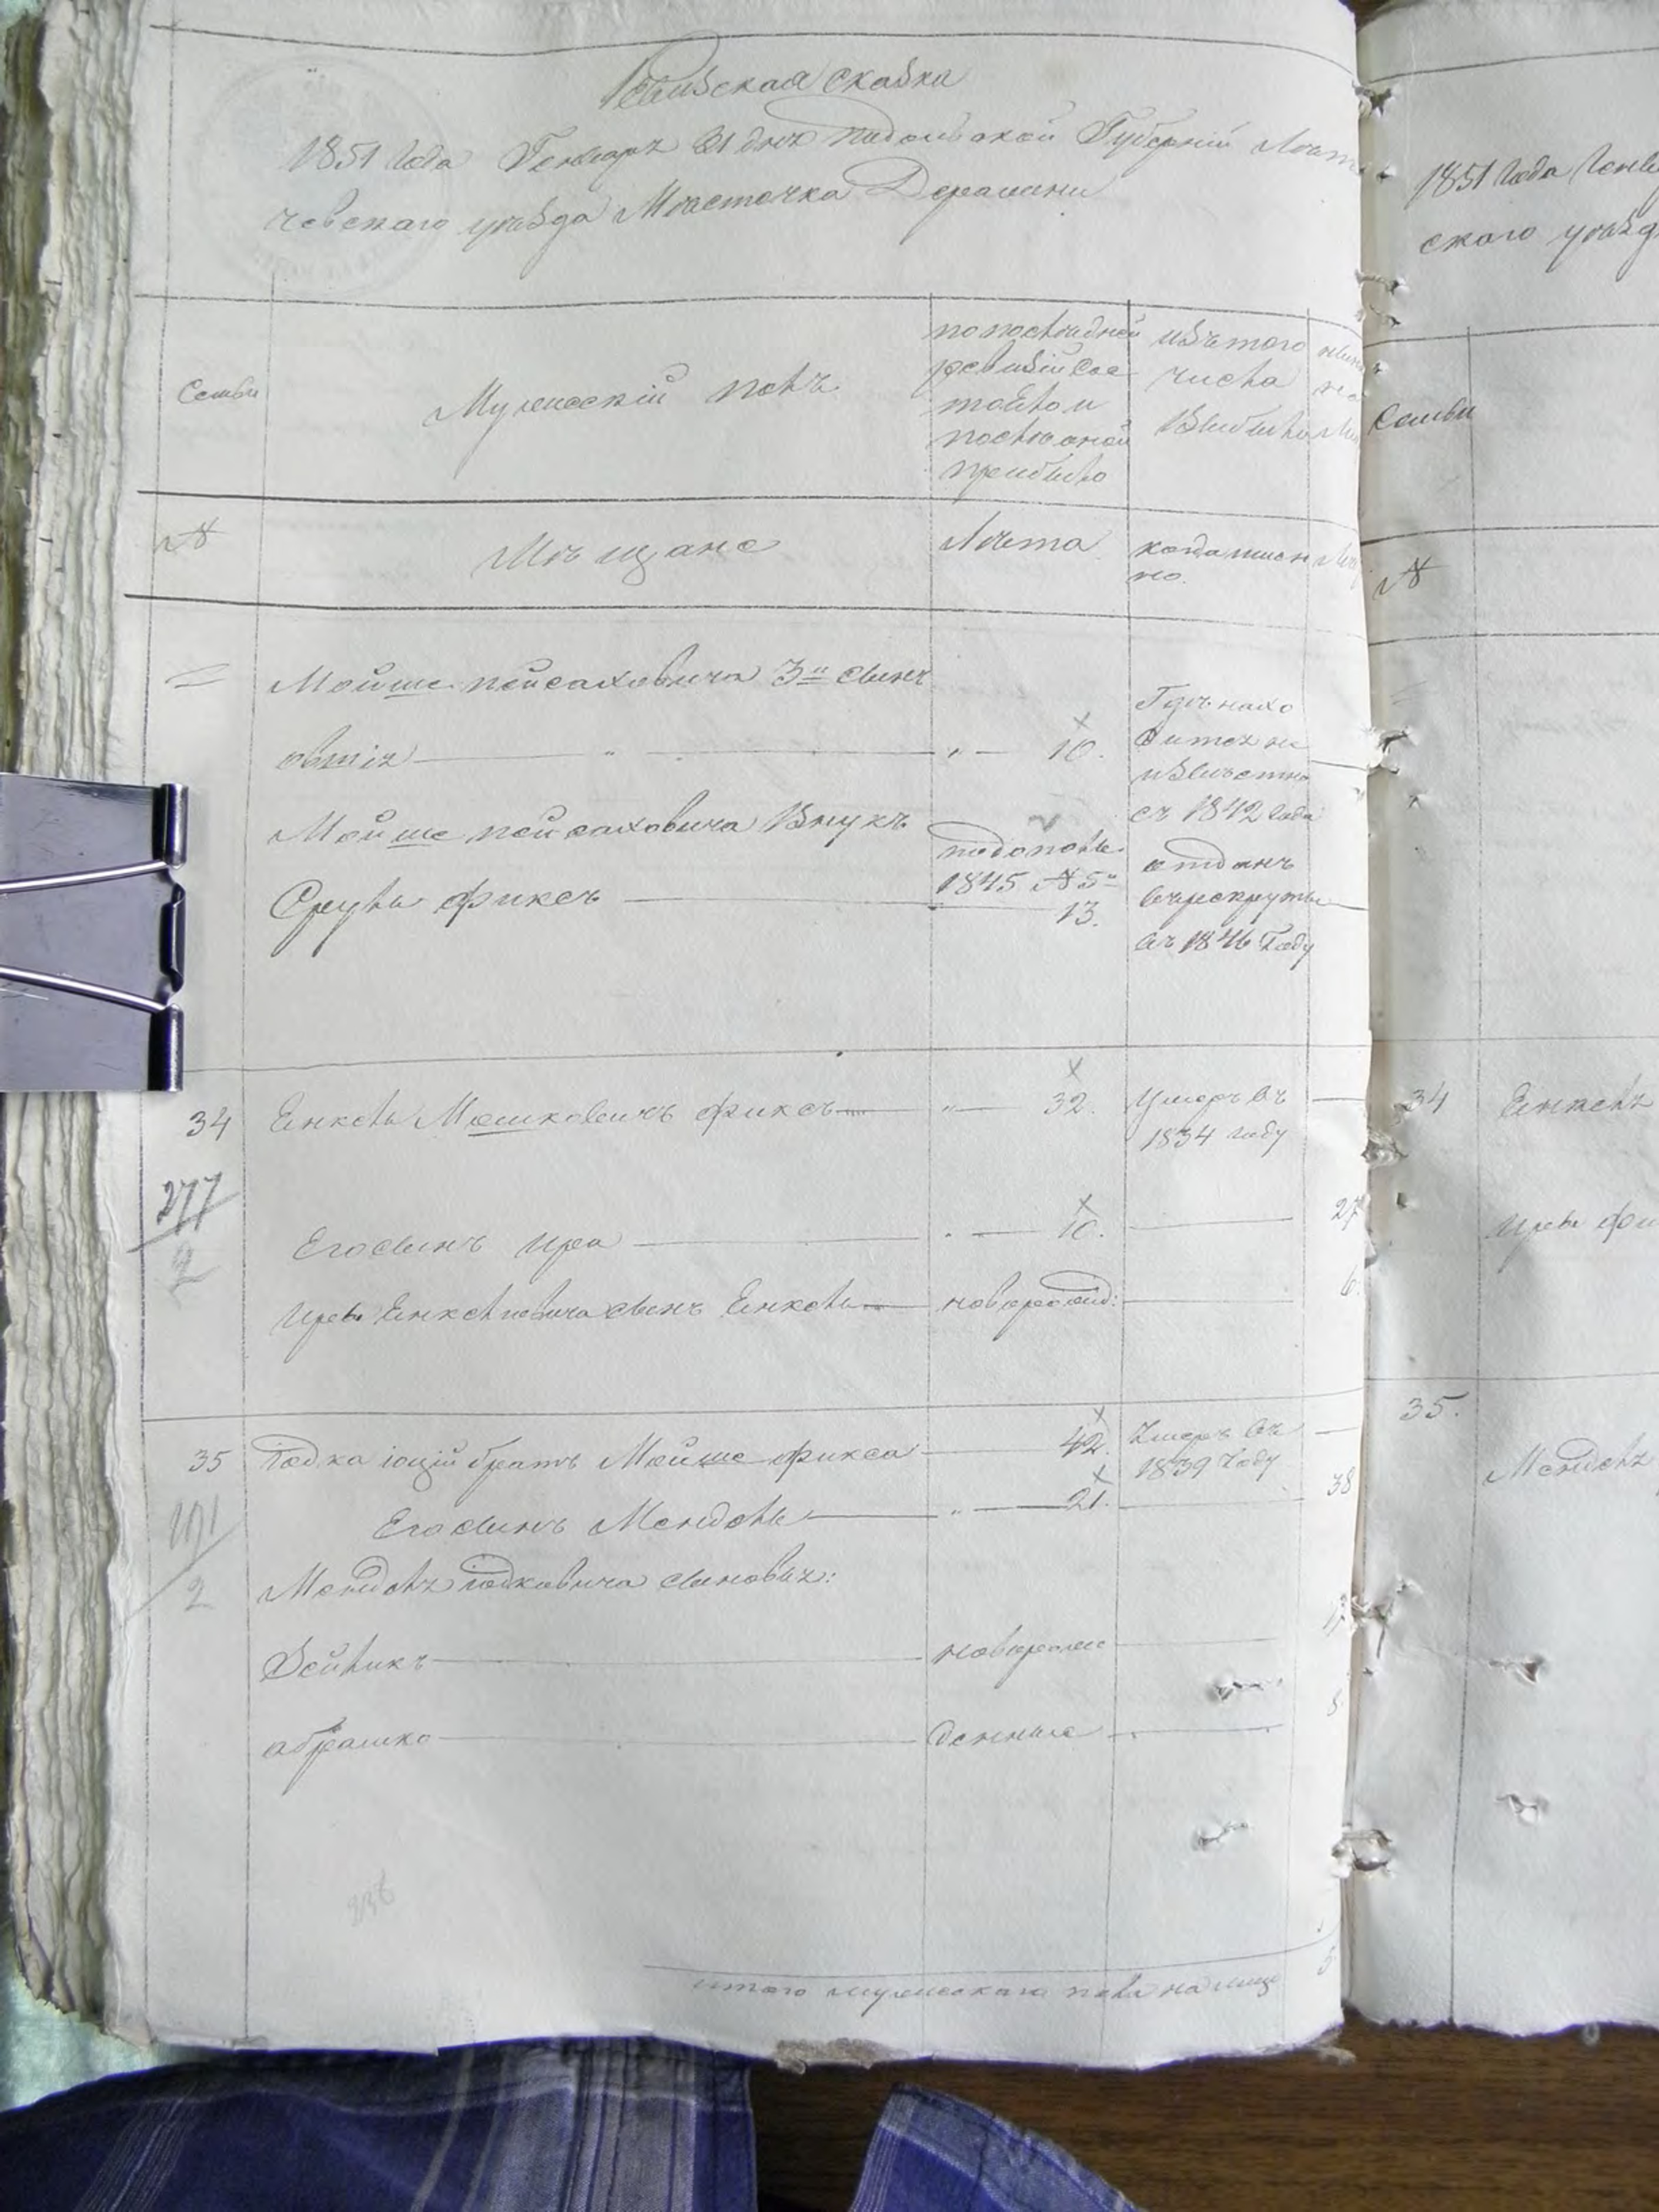 Ревизская сказка
1851 Года Генваря 31 дня Подольской Губерніи Лѣти
чевскаго уѣзда Мѣстечка Деражни
Семьи
Мужескій полъ
по последней
ревизіи сос
тояло и
после оной
прибыло
изъ того
числа
Выбыло
№
Мѣщане
Лѣта
когда имен
но.
Мойше Пейсаховича 3й сынъ
" — 10.
Гдѣ нахо
дится не
извѣстно
съ 1842 года
Мойше Пейсаховича Внукъ
по дополн.
1845 № 5
Сруль Фиксъ — 13.
отданъ
въ рекруты
въ 1846 Году
34 Енкель Мошковичъ Фиксъ — " — 32. Умеръ въ
1834 году
277
2
Его сынъ Ира — " — 10. —
Иръ Енкелевича сынъ Енкель — новорожд: —
35 Іодка Іоцій братъ Мойше Фикса — 42. Умеръ въ —
1839 Году
Его сынъ Мендель — " — 21. — 38
2
Мендля Іодковича сыновья:
Зейликъ — новорож —
абрашко — денные —
итого мужескаго пола на лице 5
1851 Года Генв
ского уѣзд
Семьи
№
34 Енкеля
35.
Менделя